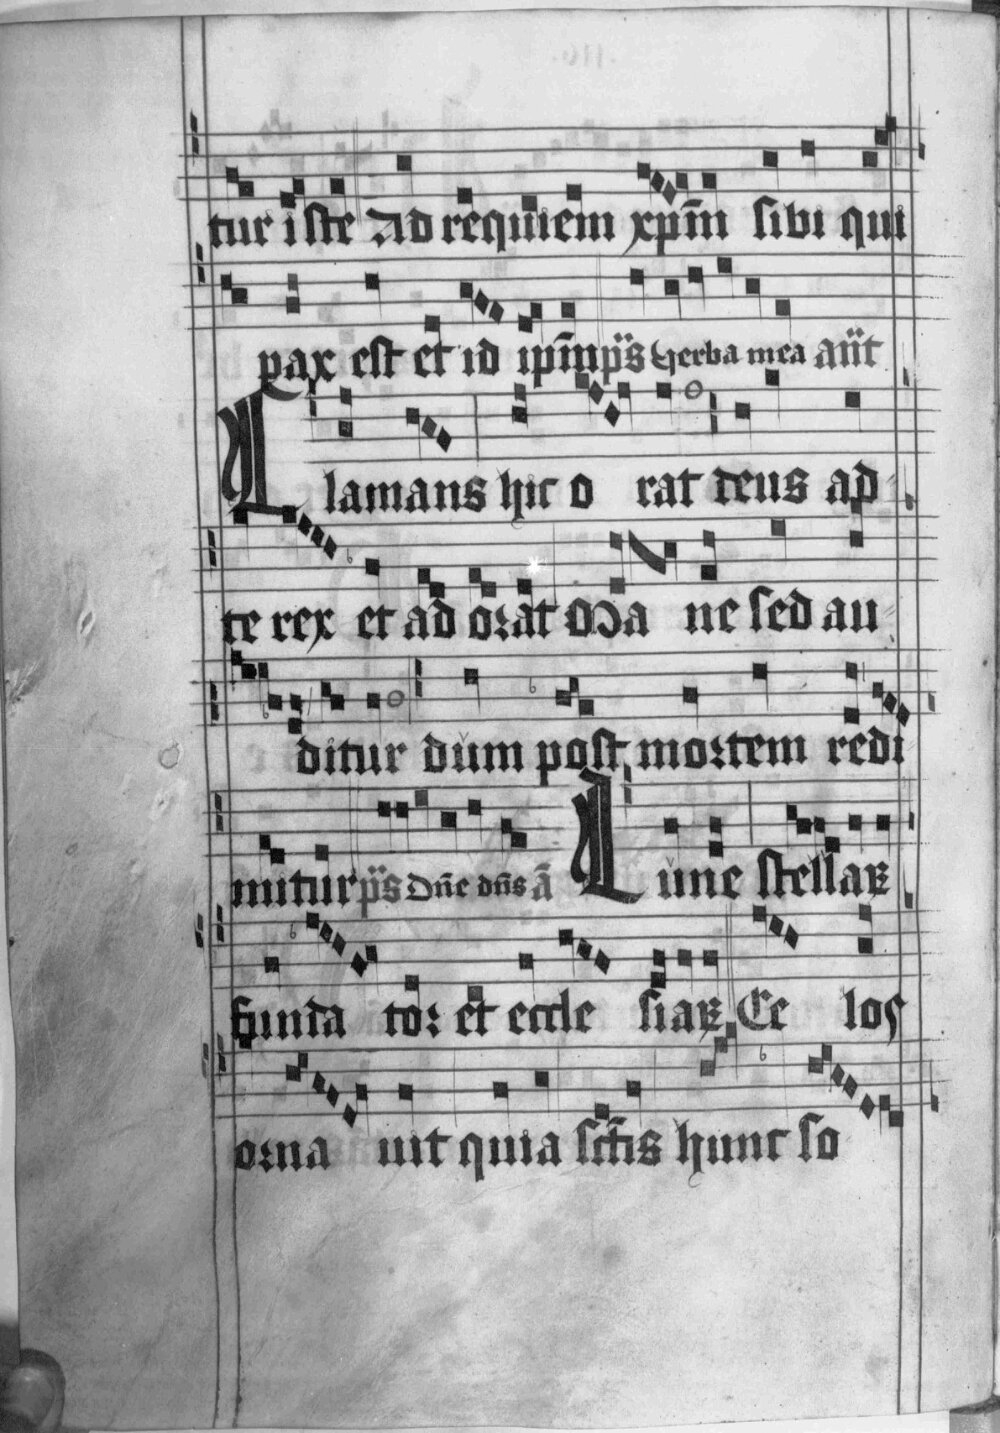 tur iste Ad requiem xp̄m sibi qui
pax est et id ip̄m p̄s Verba mea añt
Clamans hic o rat deus ad
te rex et ad orat Ma ne sed au
ditur dum post mortem redi
mitur p̄s Dn̄e dn̄s ā Lune stellaꝝ
funda tor et eccle siaꝝ Ce los
orna uit quia sct̄is hunc so